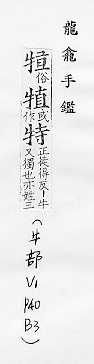 龍龕手鑑
𤙰俗犆或作特正徒得反丨牛又獨也亦姓三
(牛部
V1
P40
B3)